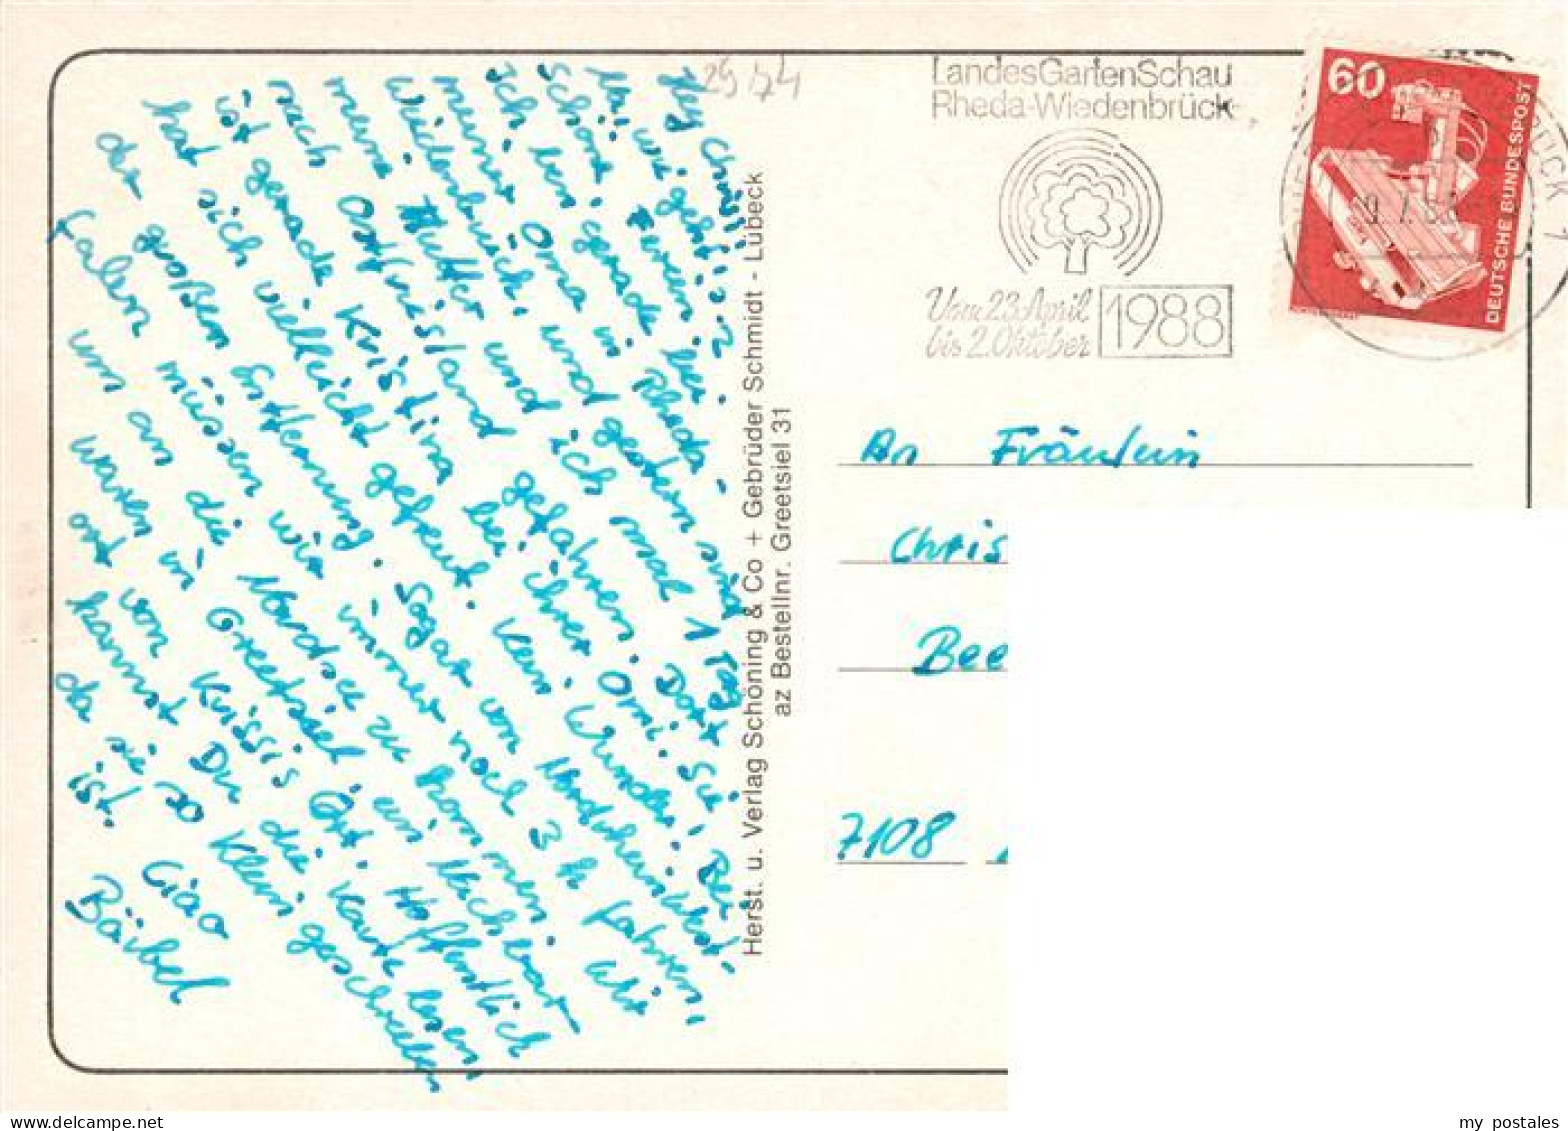 Hey Chrissi!
Na, wie geht's?
Schöne Ferien?
Ich bin gerade bei
meiner Oma in Rheda-
Wiedenbrück, und gestern sind
meine Mutter und ich mal 1 Tag
nach Ostfriesland gefahren. Dort
ist gerade Kristina bei ihrer Omi. Sie
hat sich vielleicht gefreut. Kein Wunder! Bei
der großen Entfernung. Sogar von Nordrheinwest-
falen müssen wir immer noch 3 h fahren,
um an die Nordsee zu kommen. Wir
waren in Greetsiel, ein Nachbar-
ort von Krissis Ort. Hoffentlich
kannst Du die Karte lesen,
da sie so klein geschrieben
ist. Ciao
Bärbel
29/74
Herst. u. Verlag Schöning & Co + Gebrüder Schmidt - Lübeck
az Bestellnr. Greetsiel 31
LandesGartenSchau
Rheda-Wiedenbrück
Vom 23. April
bis 2. Oktober
1988
60
DEUTSCHE BUNDESPOST
An Fräulein
Chris
Bee
7108
my postales